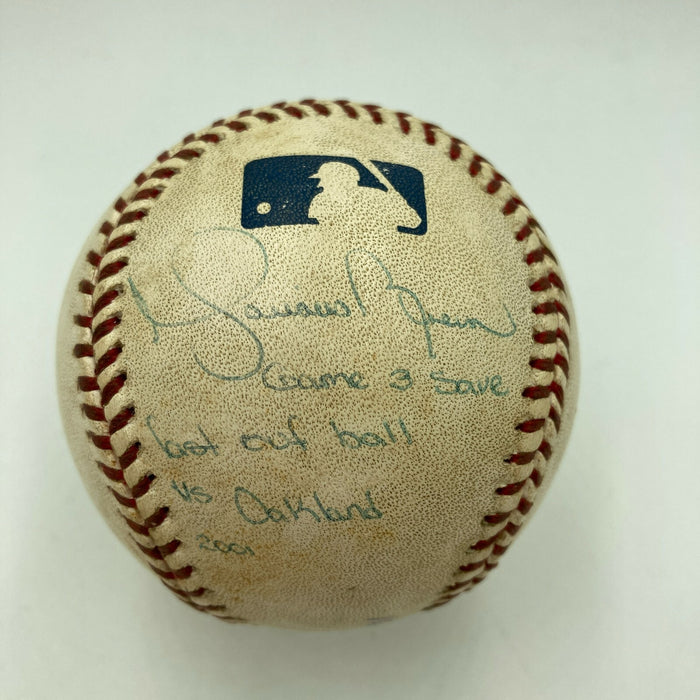 Mariano Rivera
Game 3 Save
last out ball
vs Oakland
2001